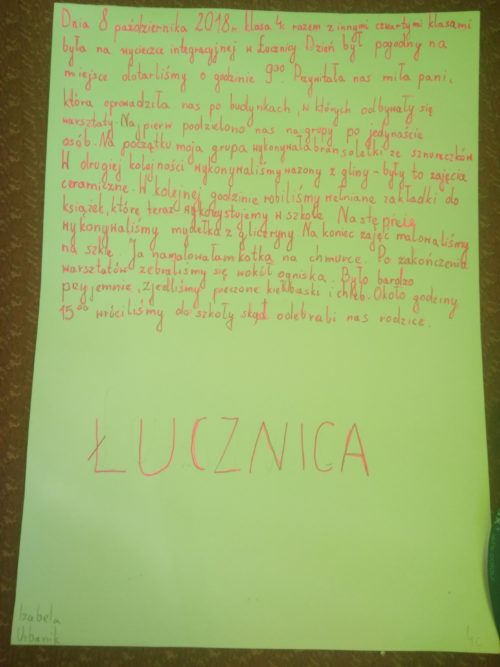 Dnia 8 października 2018r. klasa 4c razem z innymi czwartymi klasami
była na wycieczce integracyjnej w Łucznicy Dzień był pogodny na
miejsce dotarliśmy o godzinie 9⁰⁰. Przywitała nas miła pani,
która oprowadziła nas po budynkach, w których odbywały się
warsztaty. Na pierw podzielono nas na grupy po jedynaście
osób. Na początku moja grupa wykonywała bransoletki ze sznureczków
W drugiej kolejności wykonywaliśmy wazony z gliny - były to zajęcia
ceramiczne. W kolejnej godzinie robiliśmy wełniane zakładki do
książek, które teraz wykorzystujemy w szkole. Następnie
wykonywaliśmy mydełka z gliceryny Na koniec zajęć malowaliśmy
na szkle. Ja namalowałam kotka na chmurce. Po zakończeniu
warsztatów zebraliśmy się wokół ogniska. Było bardzo
przyjemnie, zjedliśmy pieczone kiełbaski i chleb. Około godziny
15⁰⁰ wróciliśmy do szkoły skąd odebrali nas rodzice.
ŁUCZNICA
Izabela
Urbanik
4c